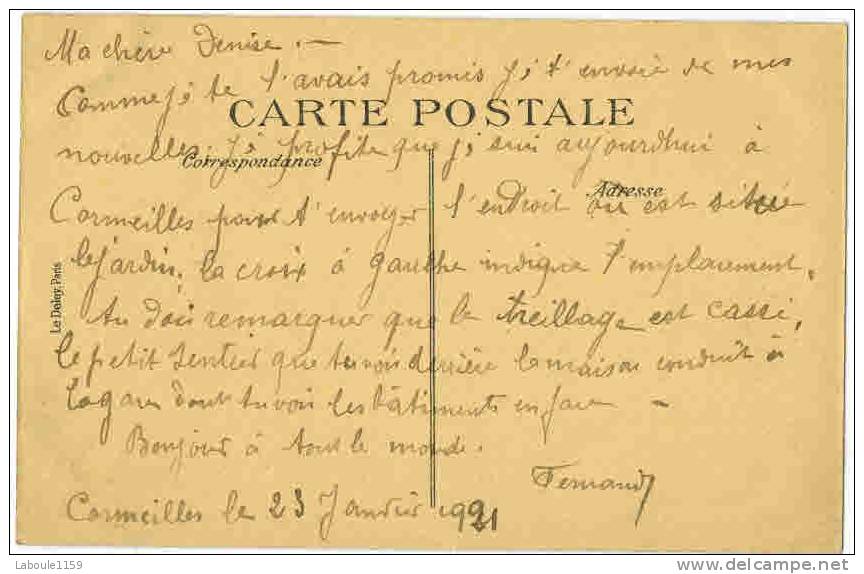 Ma chère Denise. —
Comme je te l'avais promis je t'envoie de mes
CARTE POSTALE
nouvelles, je profite que je sui aujourdhui à
Correspondance
Adresse
Cormeilles pour t'envoyer l'endroit ou est située
le jardin, la croix à gauche indique l'emplacement,
tu doi remarquer que le treillage est cassé,
le petit sentier que tu voi derrière la maison conduit à
la gare dont tu voi les bâtiments en face —
Bonjour à tout le monde.
Fernand
Cormeilles le 23 Janvier 1921
Le Deley, Paris
Laboule1159
delcampe.net